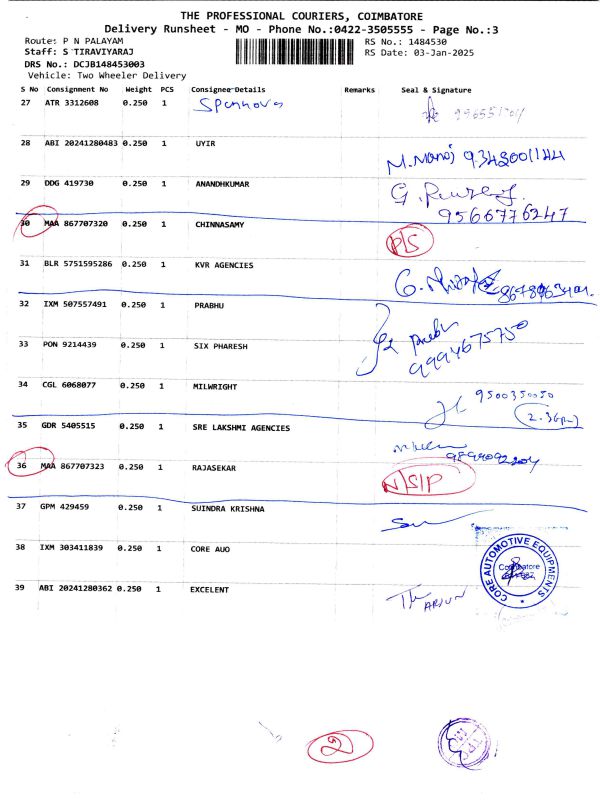 THE PROFESSIONAL COURIERS, COIMBATORE
Delivery Runsheet - MO - Phone No.:0422-3505555 - Page No.:3
Route: P N PALAYAM RS No.: 1484530
Staff: S TIRAVIYARAJ RS Date: 03-Jan-2025
DRS No.: DCJB148453003
Vehicle: Two Wheeler Delivery
S No Consignment No Weight PCS Consignee Details Remarks Seal & Signature
27 ATR 3312608 0.250 1
28 ABI 20241280483 0.250 1 UYIR
M. Manoj 9342001144
29 DDG 419730 0.250 1 ANANDHKUMAR
9566776247
30 MAA 867707320 0.250 1 CHINNASAMY P/S
31 BLR 5751595286 0.250 1 KVR AGENCIES
32 IXM 507557491 0.250 1 PRABHU
33 PON 9214439 0.250 1 SIX PHARESH
9994675750
34 CGL 6068077 0.250 1 MILWRIGHT 9500350050
35 GDR 5405515 0.250 1 SRE LAKSHMI AGENCIES
36 MAA 867707323 0.250 1 RAJASEKAR N/S/P
37 GPM 429459 0.250 1 SUINDRA KRISHNA
38 IXM 303411839 0.250 1 CORE AUO
CORE AUTOMOTIVE EQUIPMENTS
Coimbatore
39 ABI 20241280362 0.250 1 EXCELENT
ARJUN
2